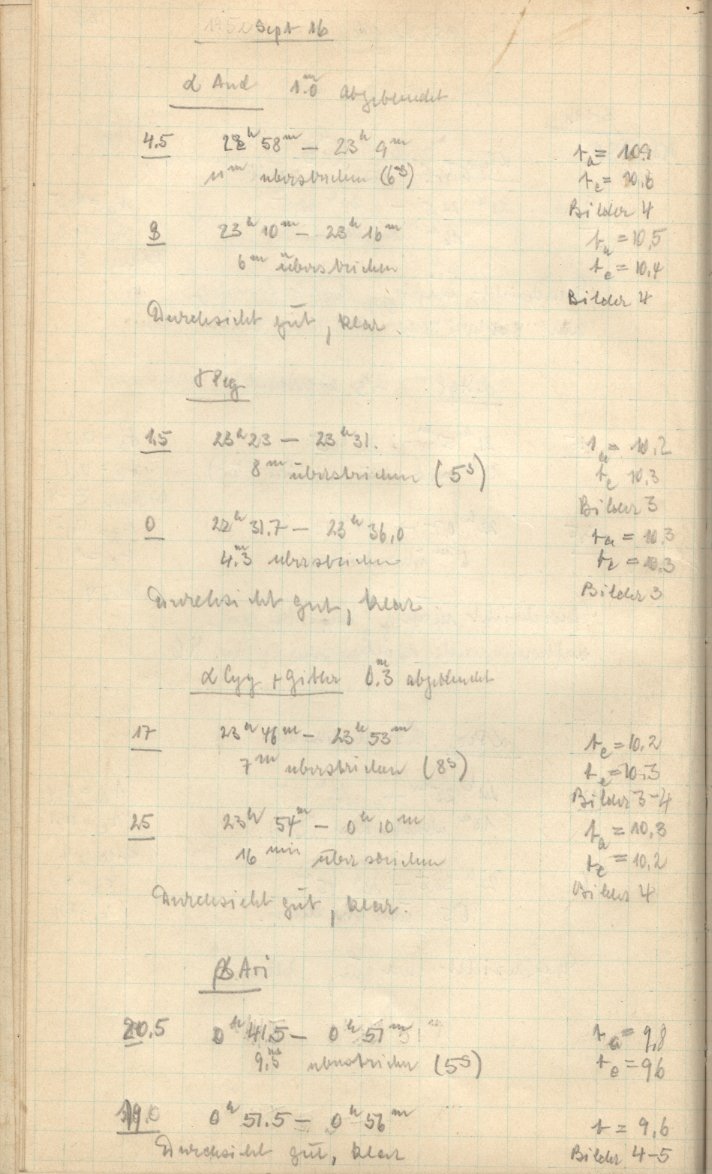 Sept 16
α And 1.0ᵐ abgeblendet
4.5 22ʰ 58ᵐ – 23ʰ 9ᵐ tₐ = 10.9
11ᵐ überstrichen (6ˢ) tₑ = 10,8
Bilder 4
9 23ʰ 10ᵐ – 23ʰ 16ᵐ tₐ = 10,5
6ᵐ überstrichen tₑ = 10,4
Bilder 4
Durchsicht gut, klar.
γ Peg
15 23ʰ 23 – 23ʰ 31. tₐ = 10,2
8ᵐ überstrichen (5ˢ) tₑ 10,3
Bilder 3
0 23ʰ 31.7 – 23ʰ 36,0 tₐ = 10,3
4.3ᵐ überstrichen tₑ = 10.3
Bilder 3
Durchsicht gut, klar
α Cyg + Gitter 0.3ᵐ abgeblendet
17 23ʰ 46ᵐ – 23ʰ 53ᵐ tₑ = 10,2
7ᵐ überstrichen (8ˢ) tₑ = 10.3
Bilder 3-4
25 23ʰ 54ᵐ – 0ʰ 10ᵐ tₐ = 10,3
16 min überstrichen tₑ = 10,2
Bilder 4
Durchsicht gut, klar.
β Ari
20.5 0ʰ 41.5 – 0ʰ 51ᵐ tₐ = 9,8
9,5ᵐ überstrichen (5ˢ) tₑ = 96
19.0 0ʰ 51.5 – 0ʰ 56ᵐ t = 9,6
Durchsicht gut, klar Bilder 4-5